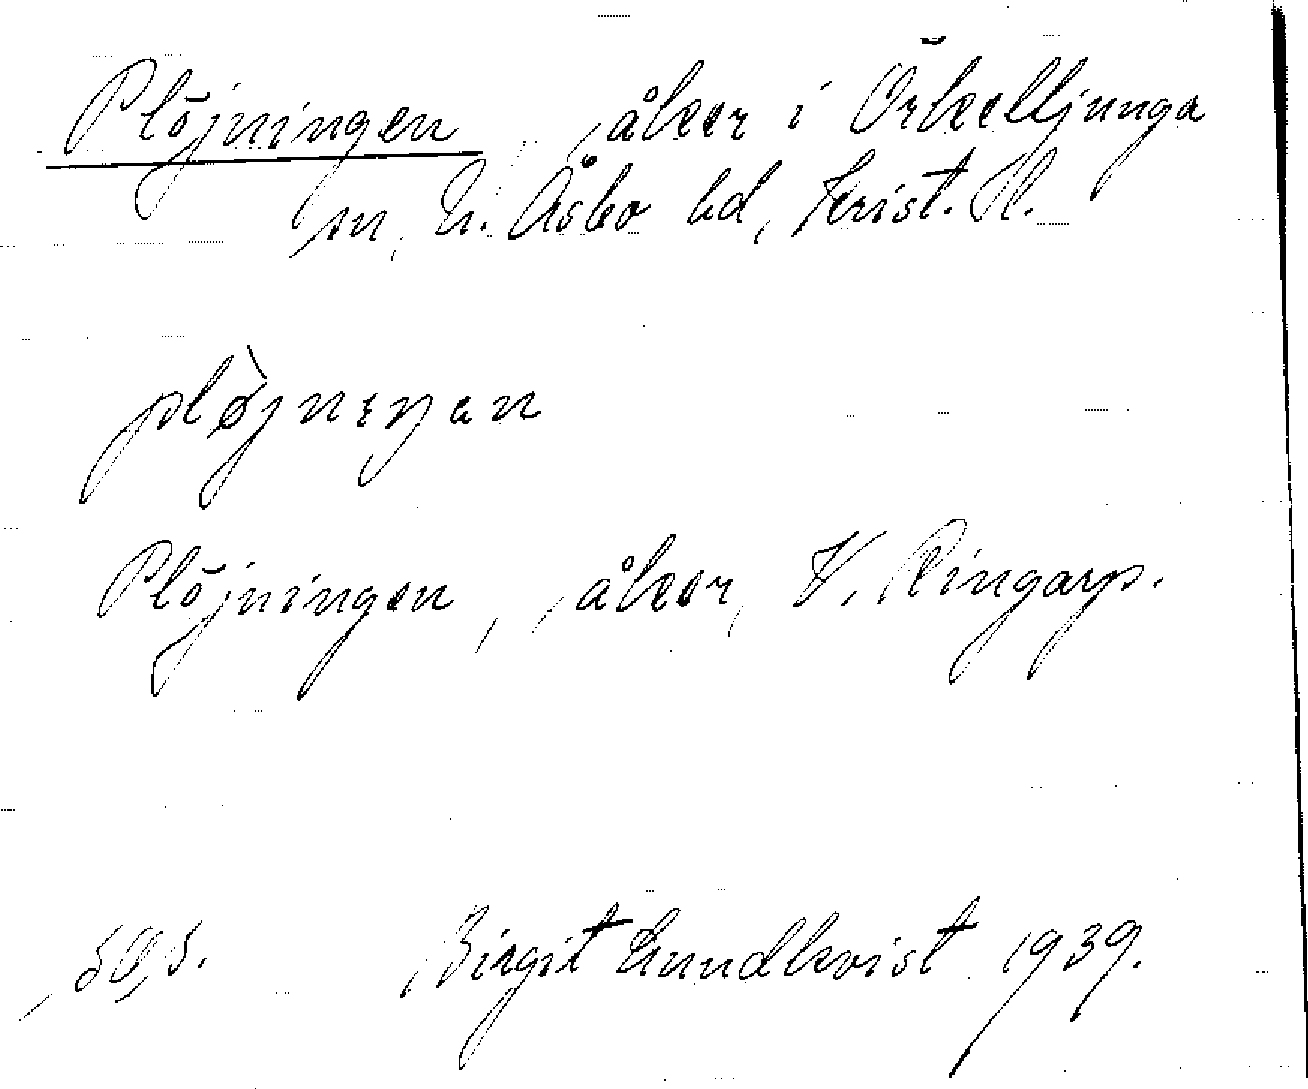 Plöjningen, åker i Örkelljunga
sn, N. Åsbo hd, Krist. l.
plø̀jnıŋan
Plöjningen, åker, V. Ringarp.
Birgit Lundkvist 1939.